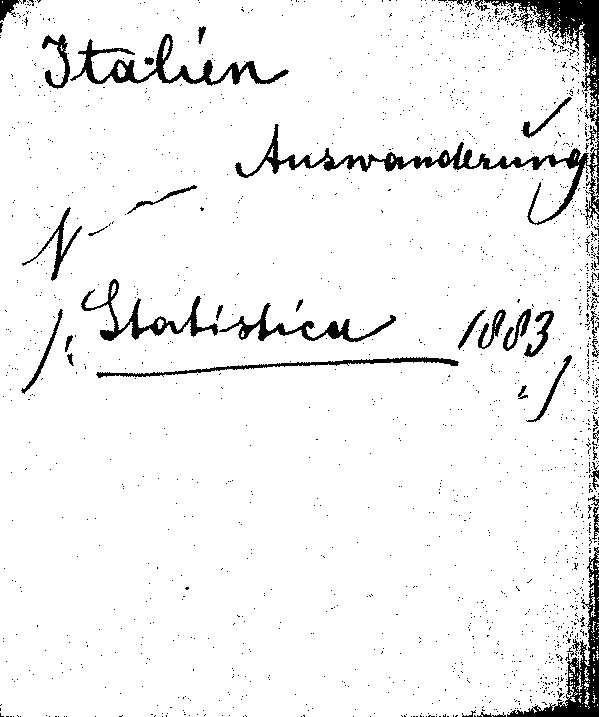 Italien
Auswanderung
N —
/: Statistica 1883 :/